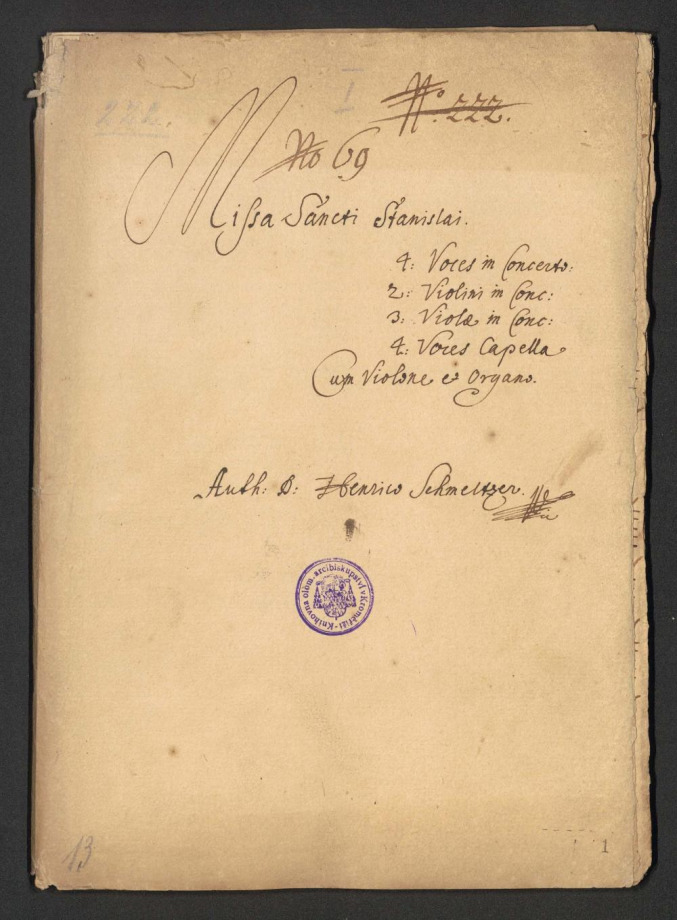 222.
I
No. 222.
No 69
Missa Sancti Stanislai.
4: Voces in Concerto:
2: Violini in Conc:
3: Violæ in Conc:
4: Voces Capella
Cum Violone et Organo.
Auth: D: Henrico Schmeltzer.
Knihovna olom. arcibiskupství v Kroměříži
13
1